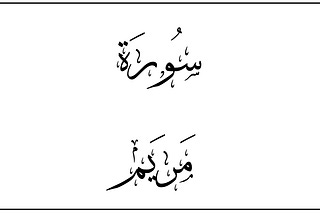 سُورَة
مَريَم